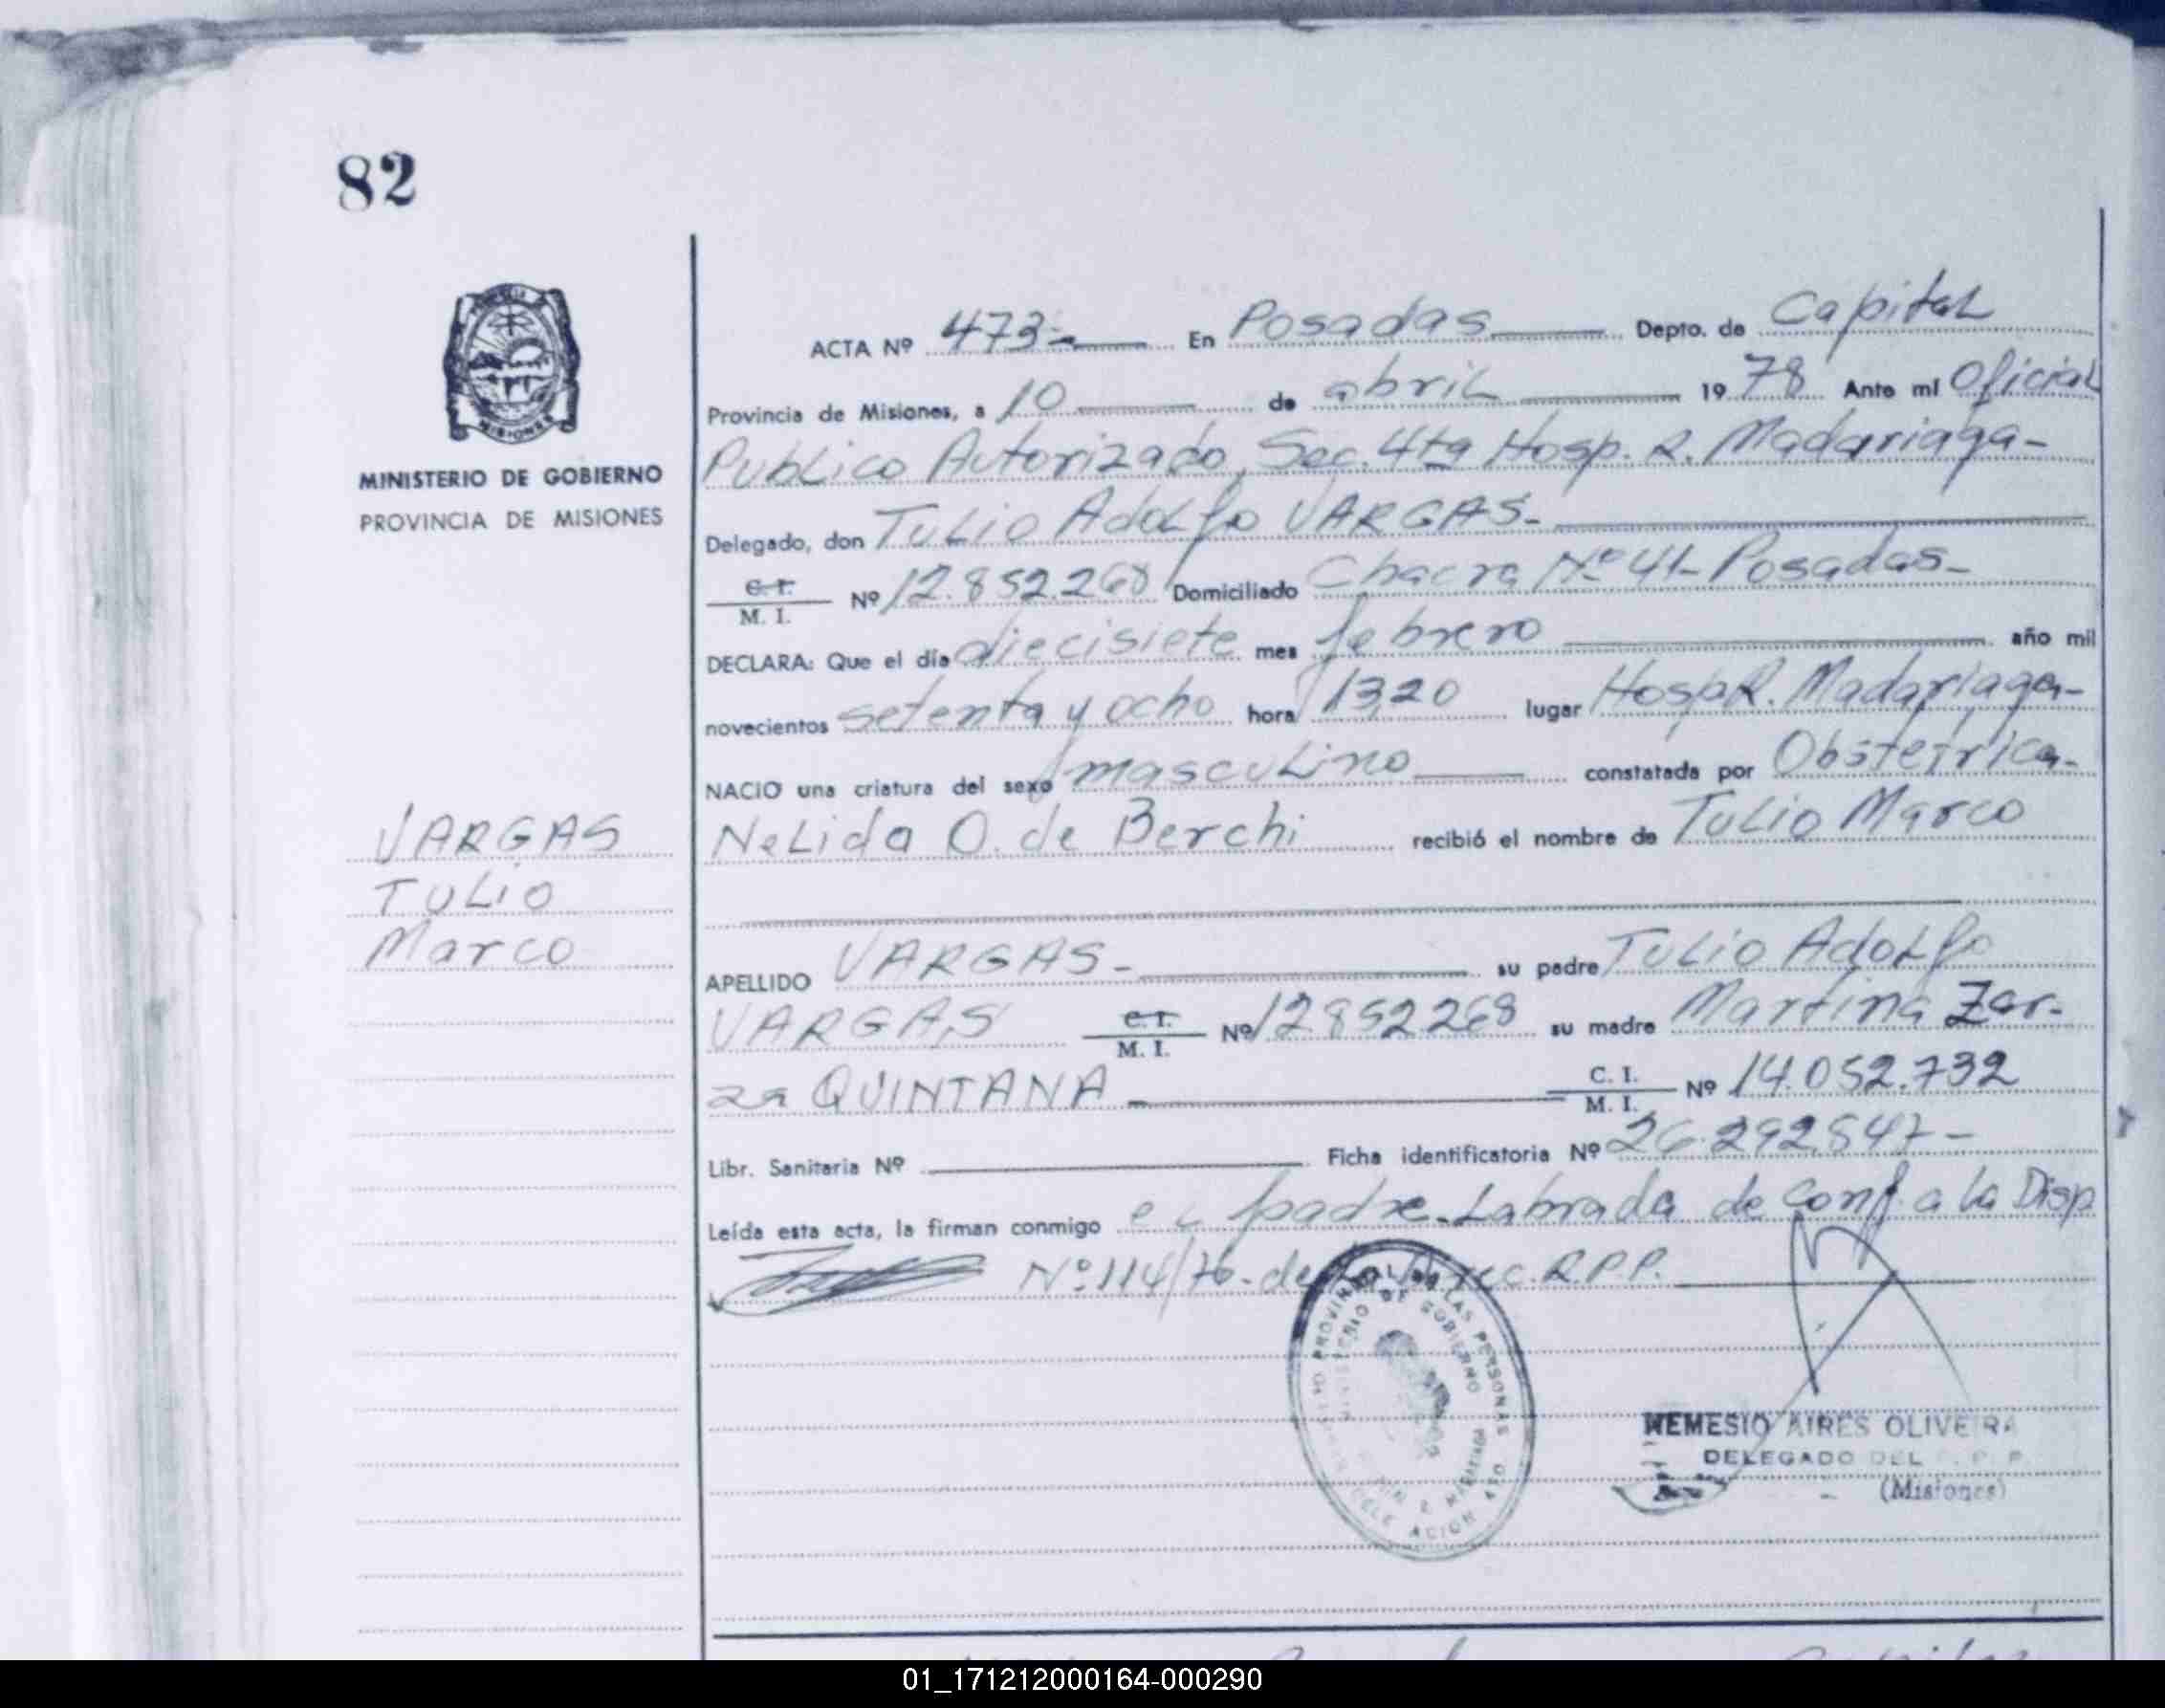 82
MINISTERIO DE GOBIERNO
PROVINCIA DE MISIONES
VARGAS
TULIO
Marco
ACTA Nº 473- En Posadas Depto. de Capital
Provincia de Misiones, a 10 de abril 19 78 Ante mí Oficial
Publico Autorizado, Sec. 4ta Hosp. R. Madariaga-
Delegado, don Tulio Adolfo VARGAS-
C. I. / M. I. Nº 12.852.268 Domiciliado Chacra Nº 41- Posadas-
DECLARA: Que el día diecisiete mes febrero año mil
novecientos setenta y ocho hora 13,20 lugar Hosp R. Madariaga-
NACIO una criatura del sexo masculino constatada por Obstetrica-
Nelida O. de Berchi recibió el nombre de Tulio Marco
APELLIDO VARGAS- su padre Tulio Adolfo
VARGAS C. I. / M. I. Nº 12852268 su madre Martina Zar-
za QUINTANA- C. I. / M. I. Nº 14.052.732
Libr. Sanitaria Nº Ficha identificatoria Nº 26.292.547-
Leída esta acta, la firman conmigo el padre. Labrada de Conf. a la Disp
Nº 114/76- de R.P.P.
PERSONAS
GOBIERNO
NEMESIO AIRES OLIVEIRA
DELEGADO DEL
(Misiones)
01_171212000164-000290